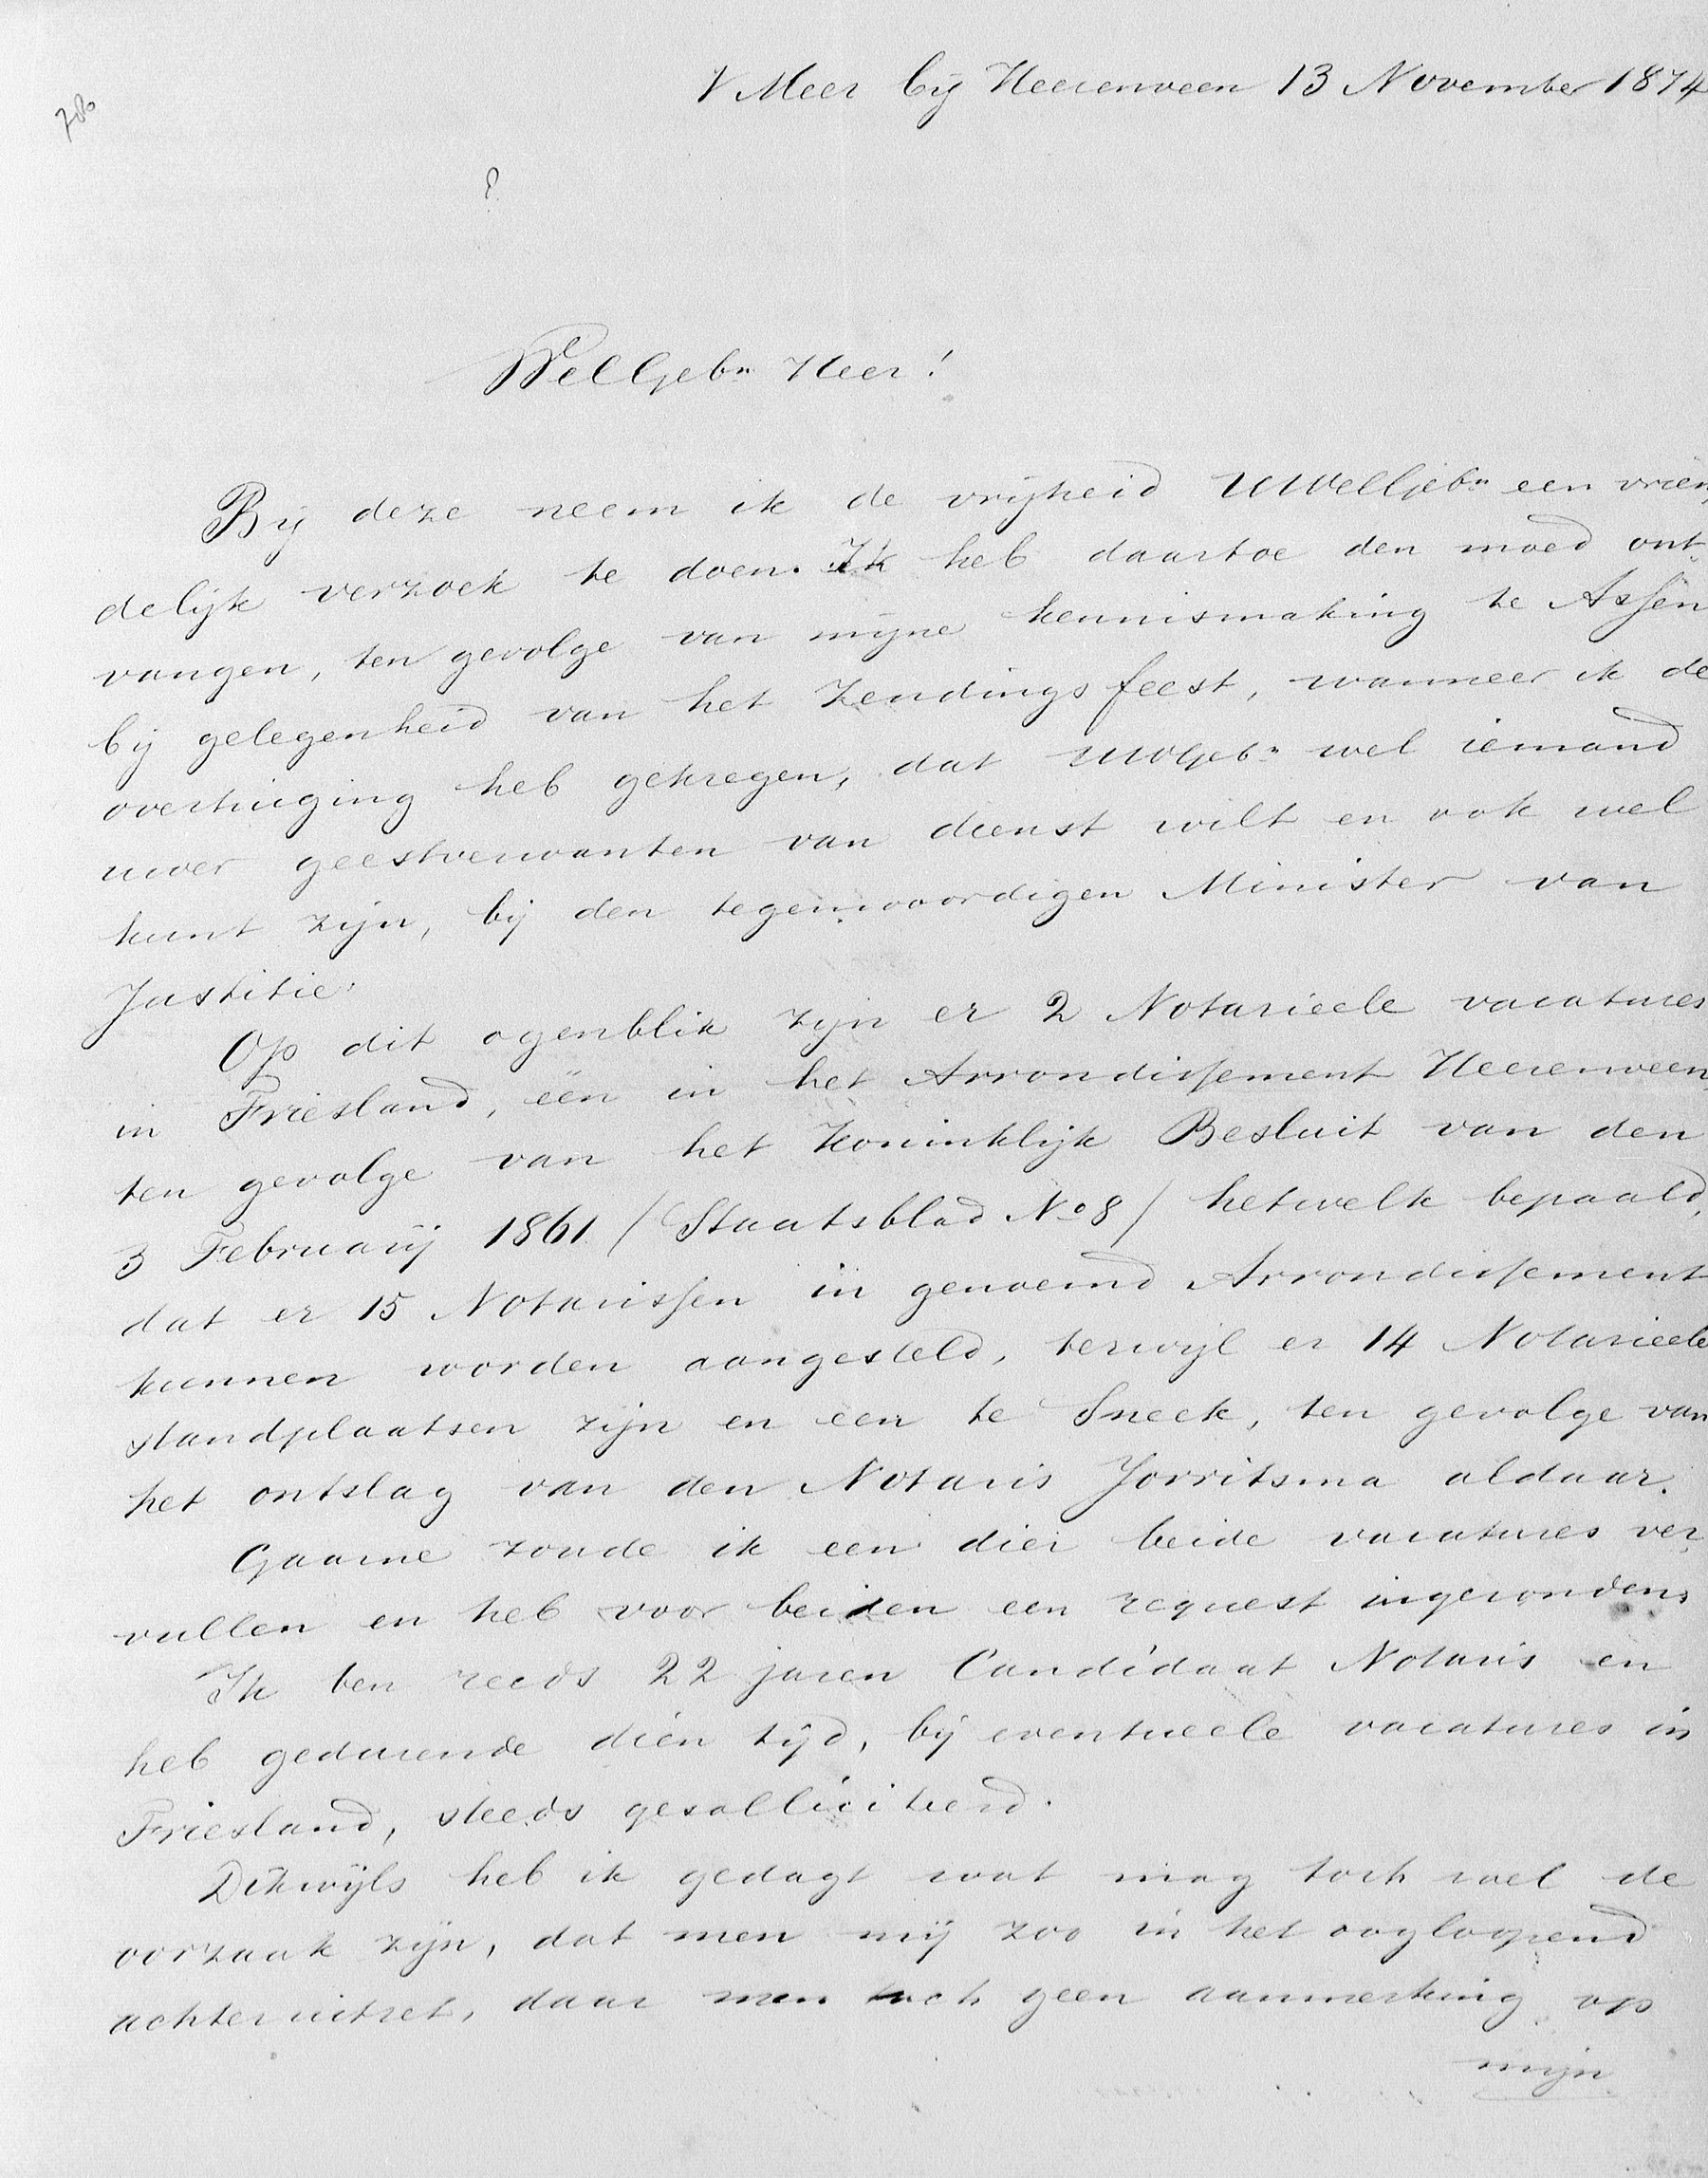 't Meer bij Heerenveen 13 November 1874
780
?
WelGebn Heer!
Bij deze neem ik de vrijheid UWelGebn een vrien
delijk verzoek te doen. Ik heb daartoe den moed ont-
vangen, ten gevolge van mijne kennismaking te Assen
bij gelegenheid van het Zendingsfeest, wanneer ik de
overtuiging heb gekregen, dat UWGebn wel iemand
uwer geestverwanten van dienst wilt en ook wel
kunt zijn, bij den tegenwoordigen Minister van
Justitie.
Op dit ogenblik zijn er 2 Notarieele vacatures
in Friesland, een in het Arrondissement Heerenveen
ten gevolge van het Koninklijk Besluit van den
3 Februarij 1861 / Staatsblad No 8 / hetwelk bepaald,
dat er 15 Notarissen in genoemd Arrondissement
kunnen worden aangesteld, terwijl er 14 Notarieele
standplaatsen zijn en een te Sneek, ten gevolge van
het ontslag van den Notaris Jorritsma aldaar.
Gaarne zoude ik een dier beide vacatures ver-
vullen en heb voor beiden een request ingezonden.
Ik ben reeds 22 jaren Candidaat Notaris en
heb gedurende dien tijd, bij eventueele vacatures in
Friesland, steeds gesolliciteerd.
Dikwijls heb ik gedagt wat mag toch wel de
oorzaak zijn, dat men mij zoo in het oogloopend
achteruitzet, daar men toch geen aanmerking op
mijn